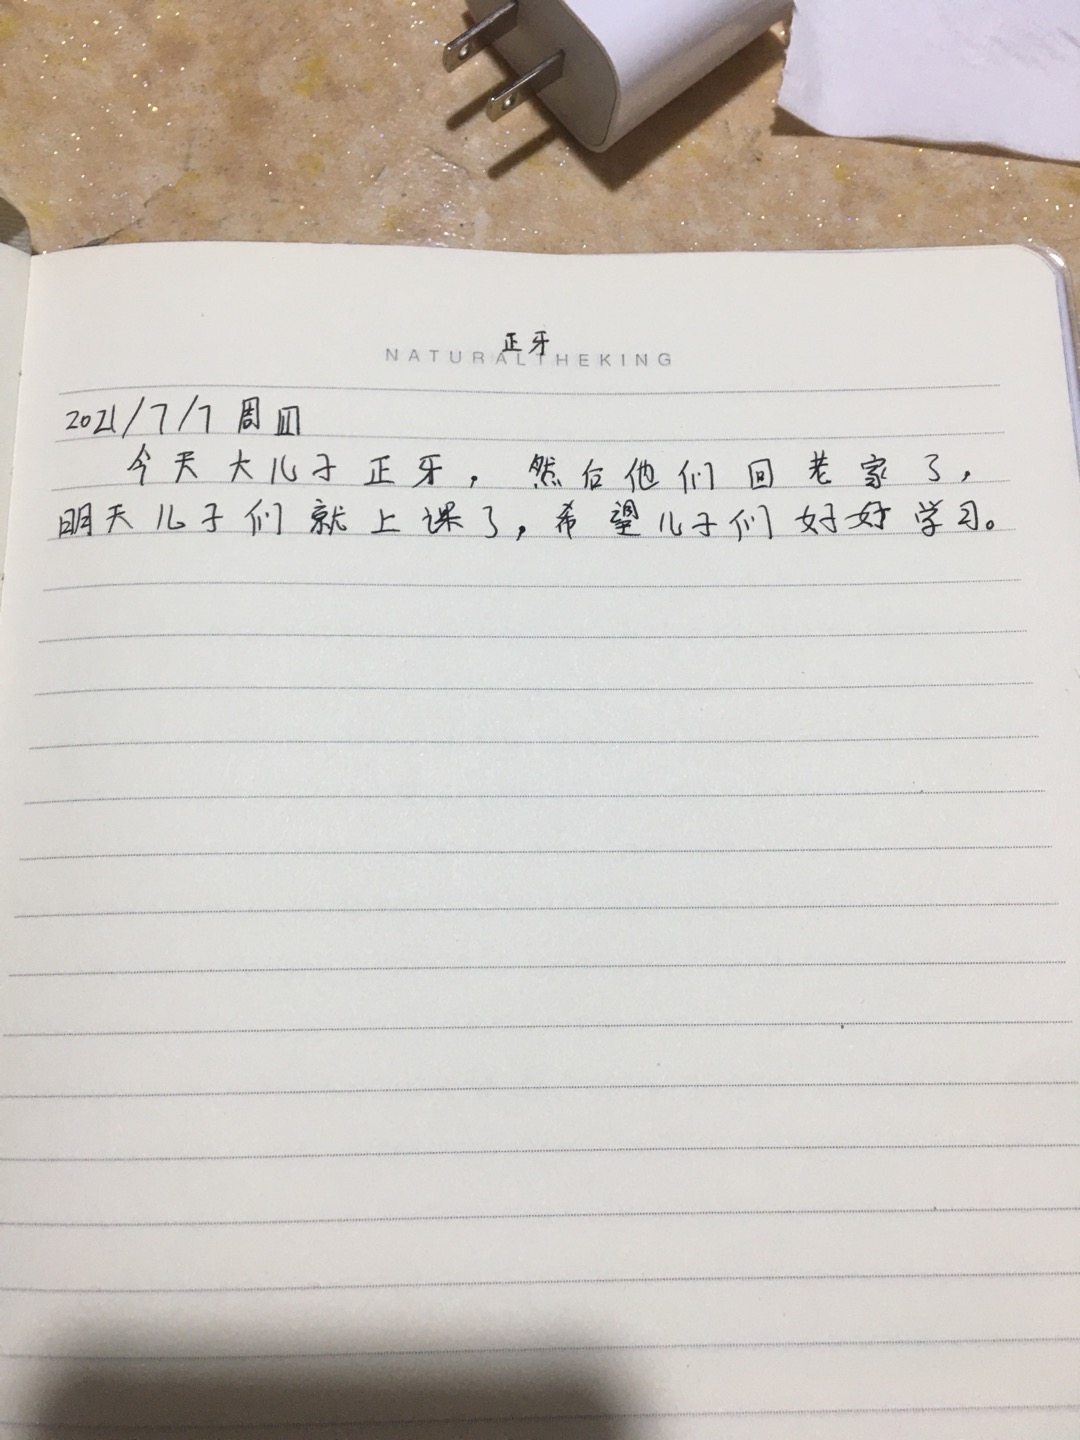 正牙
NATURALTHEKING
2021/7/7 周四
今天大儿子正牙，然后他们回老家了，
明天儿子们就上课了，希望儿子们好好学习。